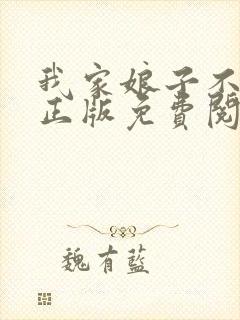 我家娘子不
正版免費閱
魏有藍